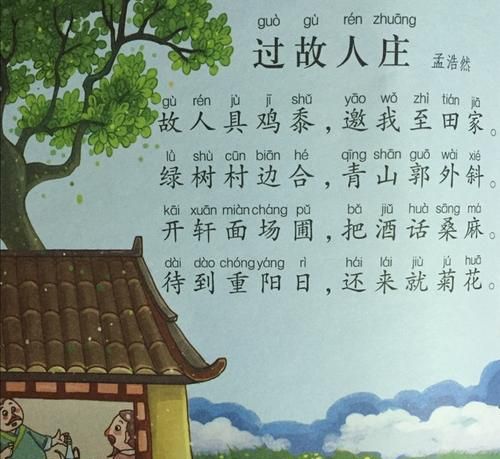 guò gù rén zhuāng
过故人庄 孟浩然
gù rén jù jī shǔ yāo wǒ zhì tián jiā
故人具鸡黍，邀我至田家。
lǜ shù cūn biān hé qīng shān guō wài xié
绿树村边合，青山郭外斜。
kāi xuān miàn cháng pǔ bǎ jiǔ huà sāng má
开轩面场圃，把酒话桑麻。
dài dào chóng yáng rì hái lái jiù jú huā
待到重阳日，还来就菊花。